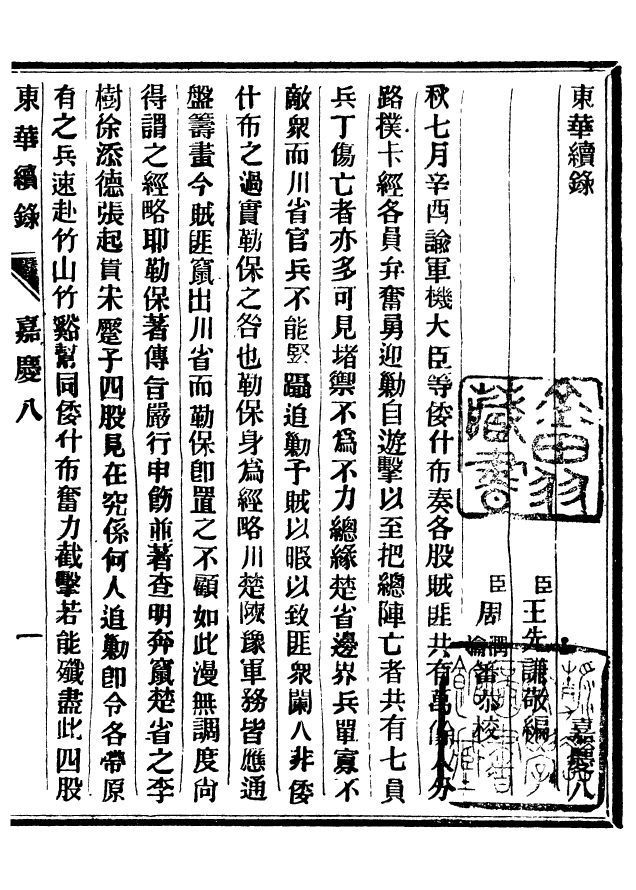 東華續錄 嘉慶八
臣王先謙敬編
臣周潤蕃恭校
秋七月辛酉諭軍機大臣等倭什布奏各股賊匪共有萬餘人分
路撲卡經各員弁奮勇迎勦自遊擊以至把總陣亡者共有七員
兵丁傷亡者亦多可見堵禦不爲不力總緣楚省邊界兵單寡不
敵衆而川省官兵不能緊躡追勦予賊以暇以致匪衆闌入非倭
什布之過實勒保之咎也勒保身爲經略川楚陝豫軍務皆應通
盤籌畫今賊匪竄出川省而勒保卽置之不顧如此漫無調度尙
得謂之經略耶勒保著傳旨嚴行申飭並著查明奔竄楚省之李
樹徐添德張起貴宋麼子四股見在究係何人追勦卽令各帶原
有之兵速赴竹山竹谿幫同倭什布奮力截擊若能殲盡此四股
東華續錄 嘉慶八 一
藏書